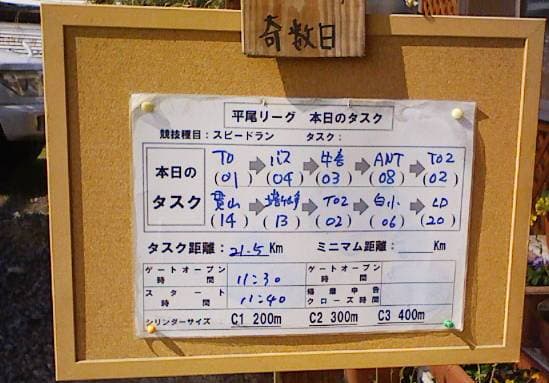 奇数日
平尾リーグ 本日のタスク
競技種目：スピードラン タスク：
本日の
タスク
TO バス 牛舎 ANT TO2
(01) (04) (03) (08) (02)
TO2 白小 LD
(14) (13) (02) (06) (20)
タスク距離： 21.5 Km ミニマム距離： Km
ゲートオープン時間 11:30 ゲートオープン時間
スタート時間 11:40 帰還申告クローズ時間
シリンダーサイズ C1 200m C2 300m C3 400m